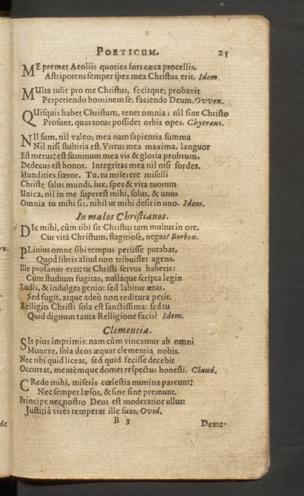 POETICUM. 25
ME premet Aeoliis quoties sors cæca procellis,
Astripotens semper spes mea Christus erit. Idem.
MUlta tulit pro me Christus, fecitque; probavit
Perpetiendo hominem se; faciendo Deum. Ovven.
QUisquis habet Christum, tenet omnia; nil sine Christo
Prosunt, quas totus possidet orbis opes. Chytræus.
NIl sum, nil valeo; mea nam sapientia summa
Nil nisi stultitia est. Virtus mea maxima, languor
Est merus; est summum mea vis & gloria probrum.
Dedecus est honor. Integritas mea nil nisi sordes.
Mundities fœtor. Tu, tu miserere miselli
Christe salus mundi, lux, spes & vita tuorum
Unica, nil in me superest mihi, solus, & unus
Omnia tu mihi sis, nihil ut mihi desit in uno. Idem.
In malos Christianos.
DIc mihi, cùm tibi sit Christus tam multus in ore,
Cur vitâ Christum, flagitiose, negas? Borbon.
PLinius omne sibi tempus periisse putabat,
Quod libris aliud non tribuisset agens.
Ille profanus erat; tu Christi servus haberis:
Cum studium fugitas, nullàque scripta legis
Ludis, & indulges genio: sed labitur ætas,
Sed fugit, atque adeò non reditura perit.
Relligio Christi sola est sanctissima: sed tu
Quid dignum tanta Relligione facis? Idem.
Clementia.
SIs pius imprimis: nam cùm vincamur ab omni
Munere, sola deos æquat clementia nobis.
Nec tibi quid liceat, sed quid fecisse decebit
Occurrat, mentemque domet respectus honesti. Claud.
CRede mihi, miseris cœlestia numina parcunt;
Nec semper læsos, & sine fine premunt.
Principe nec nostro Deus est moderatior ullus:
Justitiâ vires temperat ille suas. Ovid.
B 3 Dexte-